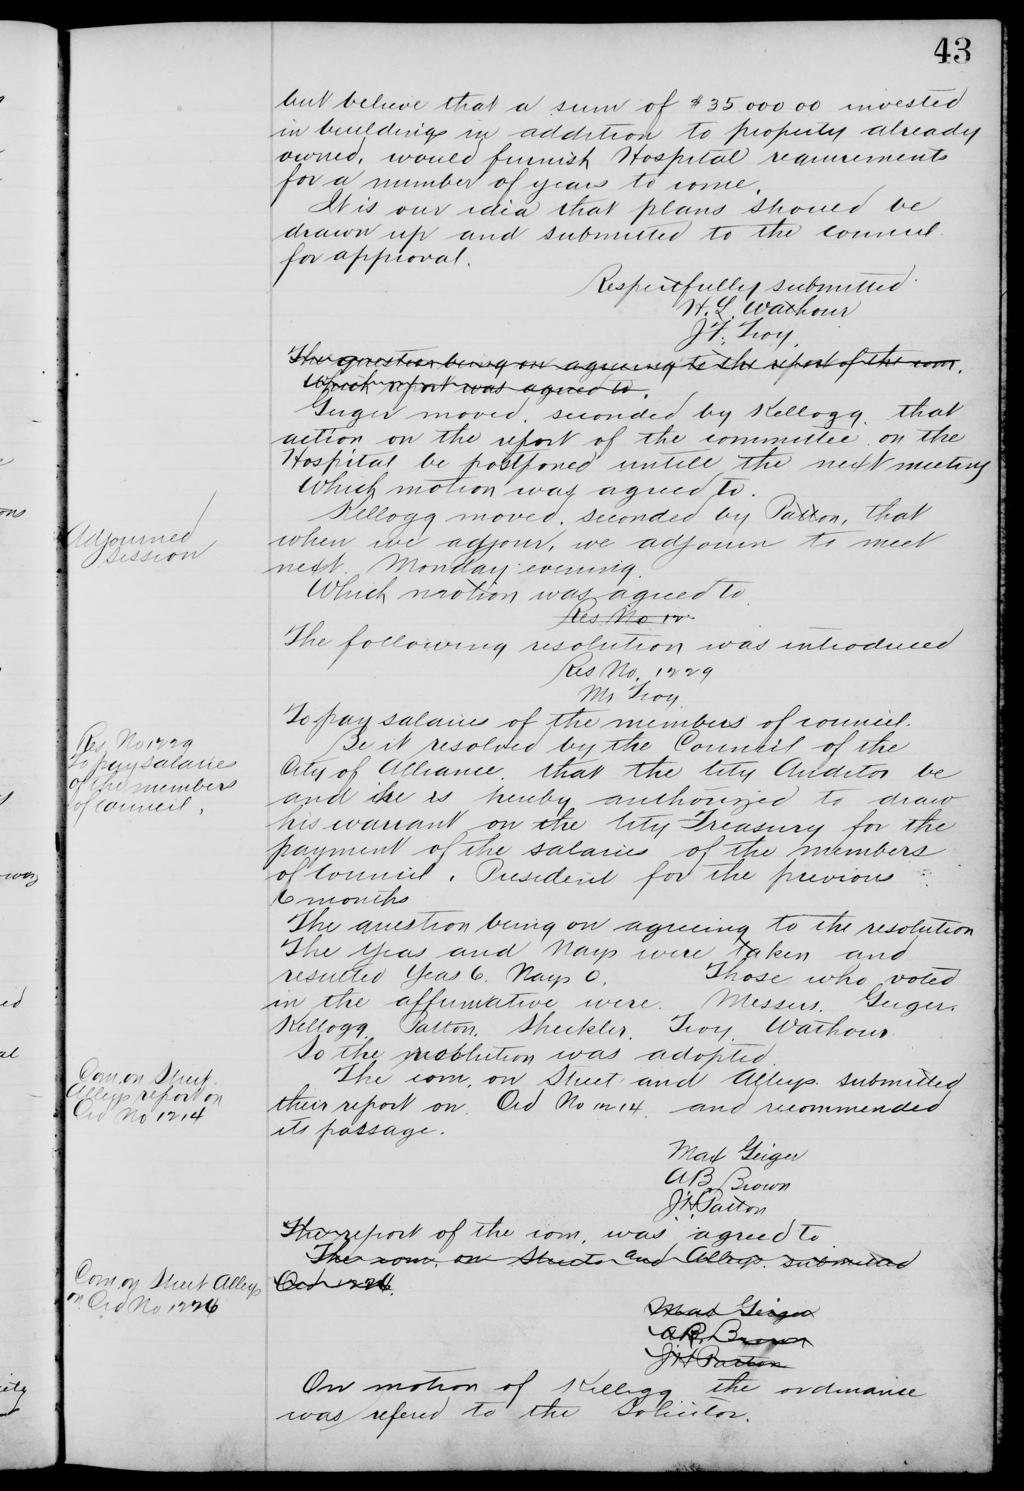 43
but believe that a sum of $35 000 00 invested
in buildings in addition to property already
owned, would furnish Hospital requirements
for a number of years to come.
It is our idea that plans should be
drawn up and submitted to the council
for approval.
Respectfully submitted
H. L. Wathour
J F. Troy.
The question being on agreeing to the report of the com.
Which report was agreed to.
Geiger moved, seconded by Kellogg, that
action on the report of the committee on the
Hospital be postponed untill the next meeting
Which motion was agreed to.
Adjourned
Session
Kellogg moved, seconded by Patton, that
when we adjour, we adjourn to meet
next Monday evening.
Which motion was agreed to
Res No 12
The following resolution was introduced
Res No. 1229
Mr Troy.
Res, No 1229
To pay salaries
of the members
of council,
To pay salaries of the members of council.
Be it resolved by the Council of the
City of Alliance, that the City Auditor be
and he is hereby authorized to draw
his warrant on the City Treasury for the
payment of the salaries of the members
of Council, President for the previous
6 months
The question being on agreeing to the resolution
The Yeas and Nays were taken and
resulted Yeas 6. Nays 0. Those who voted
in the affirmative were. Messers. Geiger.
Kellogg, Patton, Sheckler, Troy, Wathour
So the resolution was adopted
Com, on Street
Alleys report on
Ord No 1214
The com, on Street and Alleys submitted
their report on Ord No 1214 and recommended
its passage.
Max Geiger
A B. Brown
J.H. Patton
The report of the com, was agreed to
The com, on Streets and Alleys submitted
Ord 1226.
Com, on Street Alleys
on Ord No 1226
Max Geiger
A B, Brown
J H Patton
On motion of Kellogg the ordinance
was refered to the Solicitor.